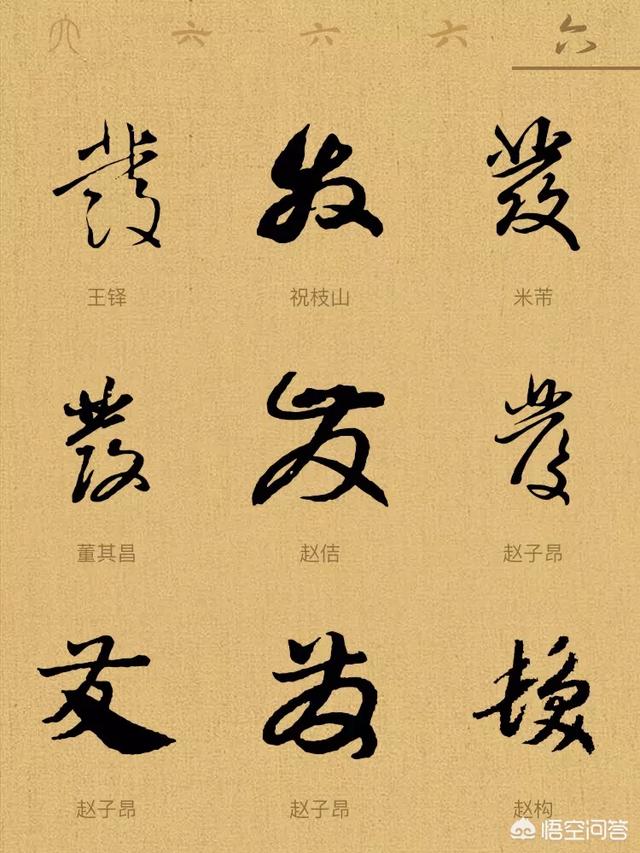 六 六 六 六 六
發 發 發
王铎 祝枝山 米芾
發 發 發
董其昌 赵佶 赵子昂
發 發
赵子昂 赵子昂 赵构
悟空问答